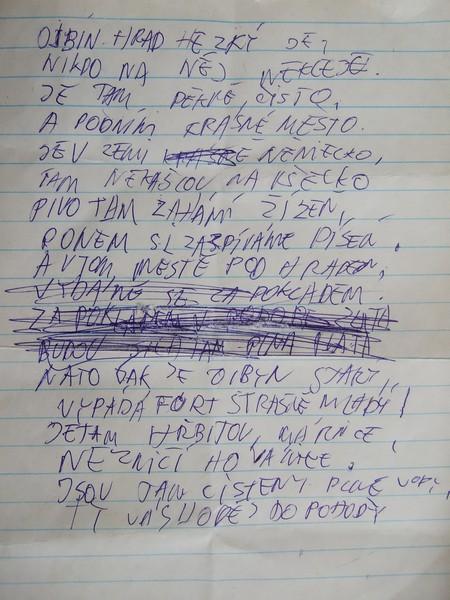 OJBIN HRAD HEZKÝ JE,
NIKDO NA NĚJ NEKCEJE.
JE TAM PĚKNĚ, ČISTO,
A POD NÍM KRÁSNÉ MĚSTO.
JE V ZEMI NĚMECKO,
TAM NEKAŠLOU NA VŠECKO
PIVO TAM ZAHÁNÍ ŽÍZEŇ,
PONEM SI ZAZPÍVÁME PÍSEŇ.
A V TOM MĚSTĚ POD HRADEM,
VYDÁME SE ZA POKLADEM.
ZA POKLADEM V ZLATA
BUDOU TAM ZLATA
NATO JAK JE OJBYN STARÝ,,
VYPADÁ FORT STRAŠNĚ MLADÝ!
JE TAM HŘBITOV, MÁRNICE,
NEZNIČÍ HO
JSOU TAM CISTERNY PLNÉ VODY,
TY DO POHODY